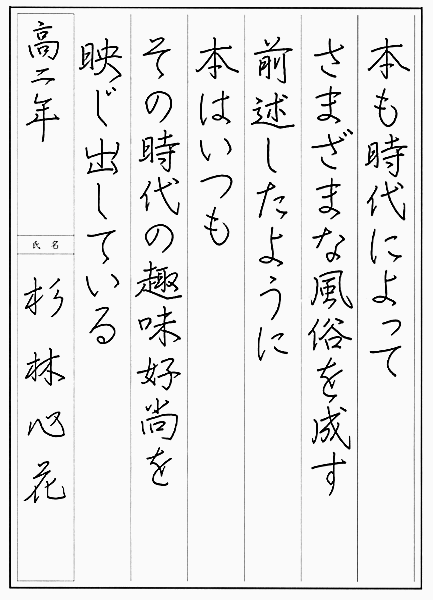 本も時代によって
さまざまな風俗を成す
前述したように
本はいつも
その時代の趣味好尚を
映じ出している
高二年
氏名
杉林心花